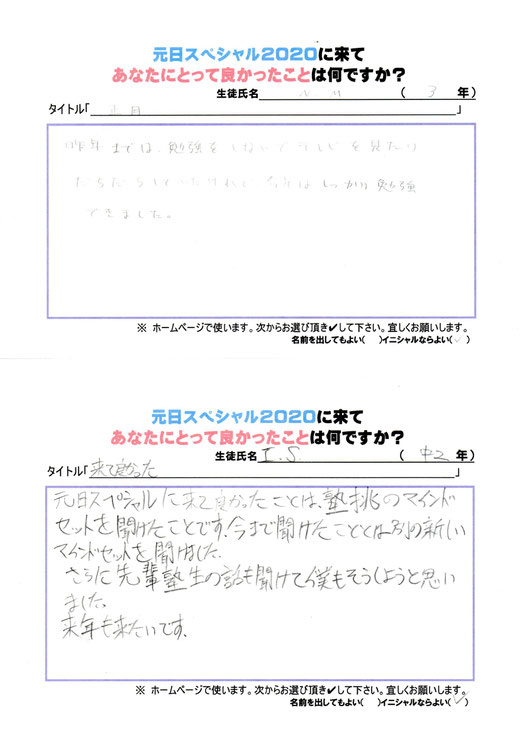 元日スペシャル2020に来て
あなたにとって良かったことは何ですか?
生徒氏名 N.M ( 3 年)
タイトル「 正月 」
昨年までは、勉強をしないでテレビを見たり
だらだらしていたけれど今年はしっかり勉強
できました。
※ ホームページで使います。次からお選び頂き✔して下さい。宜しくお願いします。
名前を出してもよい( )イニシャルならよい(✓)
元日スペシャル2020に来て
あなたにとって良かったことは何ですか?
生徒氏名 I.S. ( 中2 年)
タイトル「来て良かった 」
元日スペシャルに来て良かったことは、塾挑のマインド
セットを聞けたことです。今まで聞けたこととは別の新しい
マインドセットを聞けました。
さらに先輩塾生の話も聞けて僕もそうしようと思い
ました。
来年も来たいです。
※ ホームページで使います。次からお選び頂き✔して下さい。宜しくお願いします。
名前を出してもよい( )イニシャルならよい(✓)